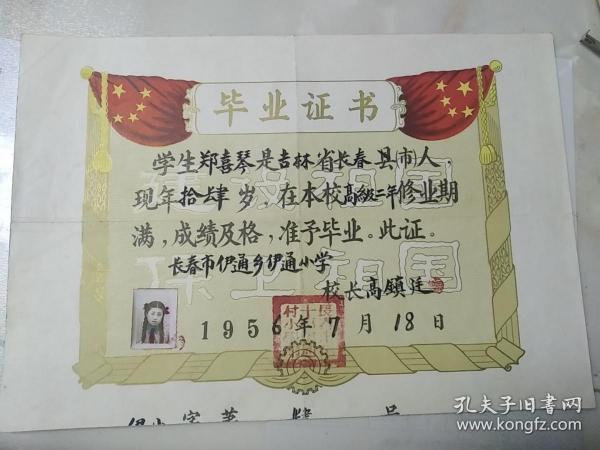 毕业证书
学生郑喜琴是吉林省长春县市人，
现年拾肆岁，在本校高级二年修业期
满，成绩及格，准予毕业。此证。
长春市伊通乡伊通小学
校长高镇廷
1956年7月18日
字第 号
孔夫子旧书网
www.kongfz.com